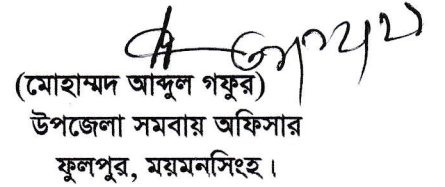 (মোহাম্মদ আব্দুল গফুর)
উপজেলা সমবায় অফিসার
ফুলপুর, ময়মনসিংহ।